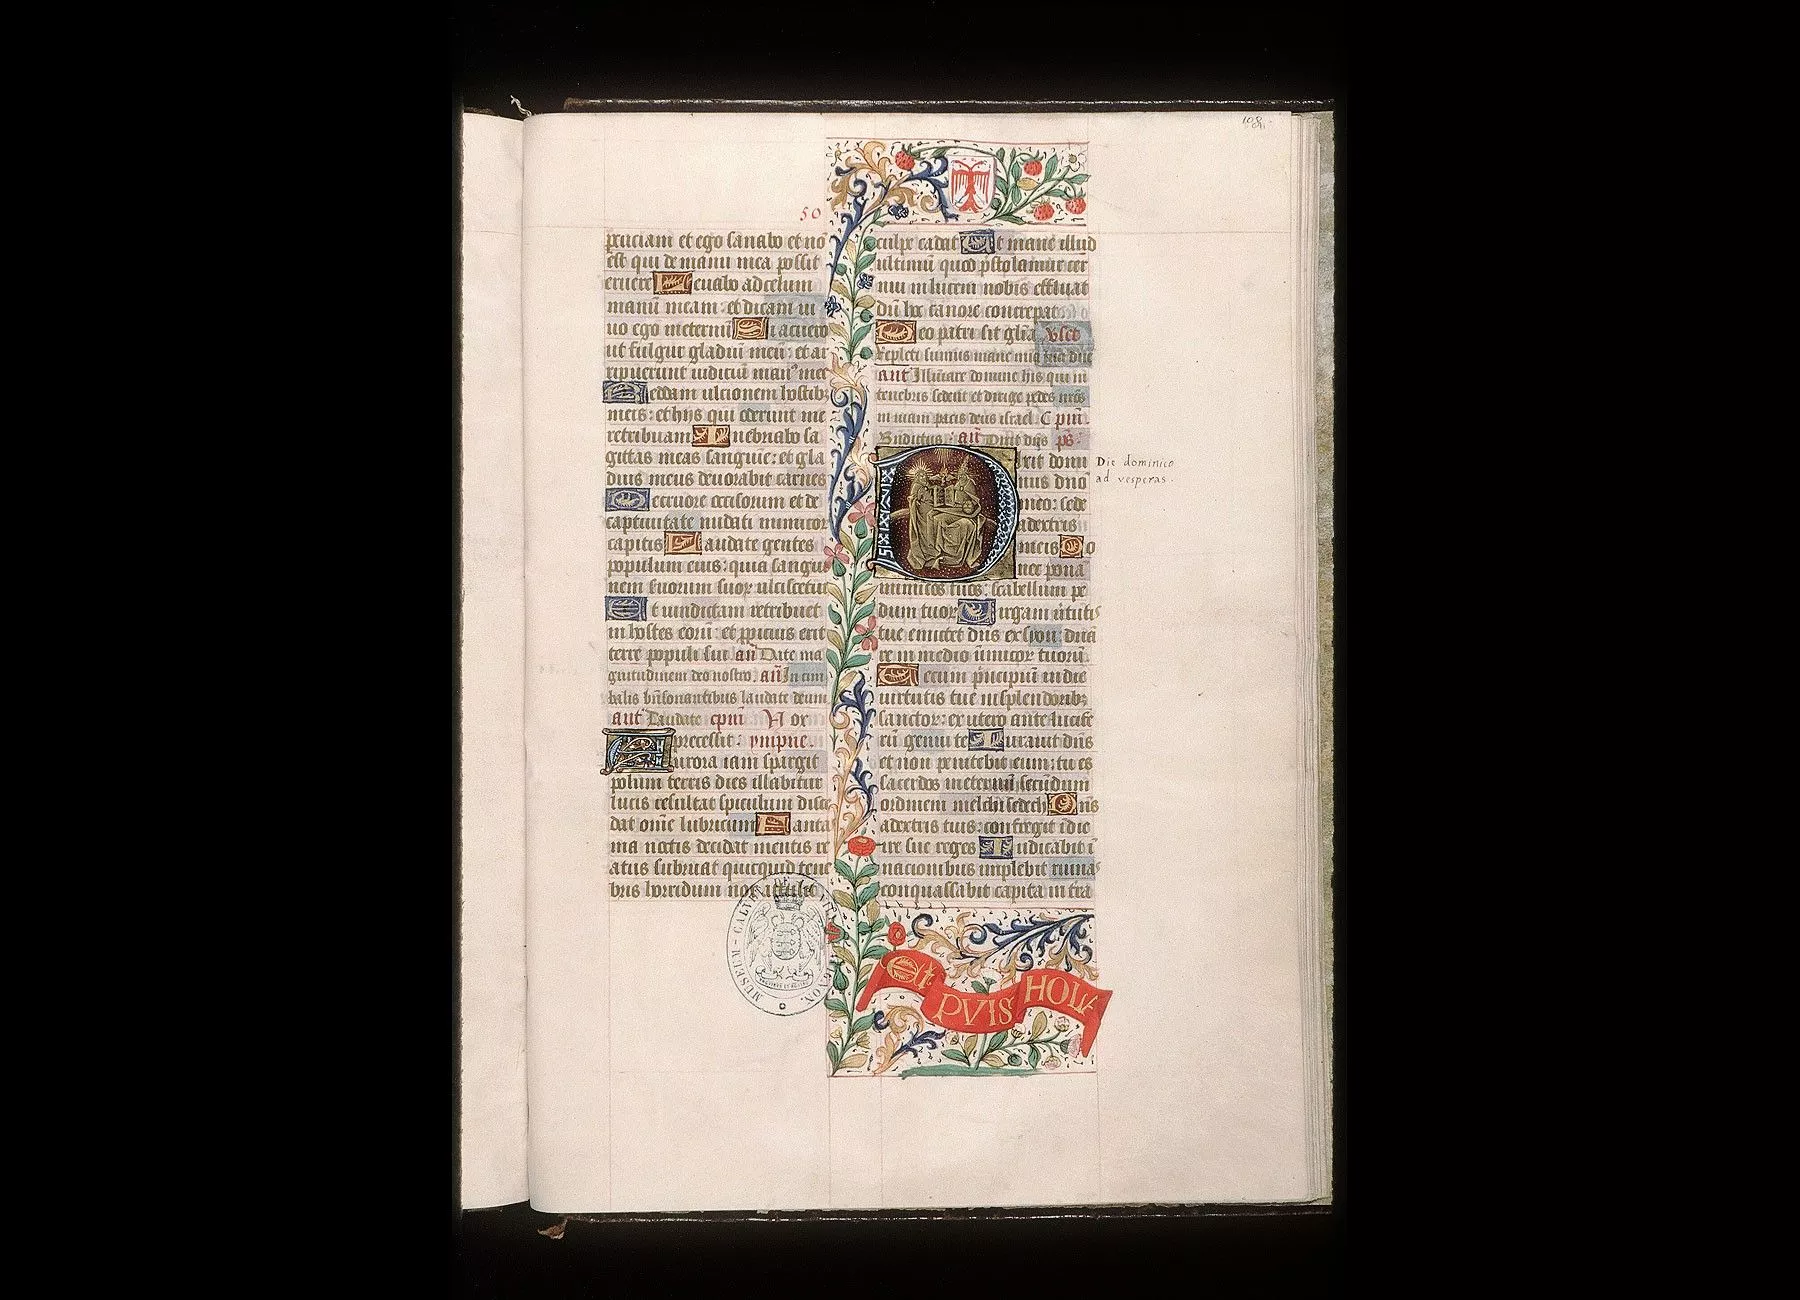 108
50
percuciam et ego sanabo et nō
est qui de manu mea possit
eruere Levabo ad celum
manū meam: et dicam vi
vo ego in eternū Si acuero
ut fulgur gladiū meū: et ar
ripuerint iudiciū manꝰ mea
Reddam ulcionem hostibꝫ
meis: et hijs qui oderunt me
retribuam Inebriabo sa
gittas meas sanguīe: et gla
dius meus devorabit carnes
De cruore occisorum et de
captivitate nudati inimicoꝝ
capitis Laudate gentes
populum eius: quia sangui
nem suorum suoꝝ ulciscetur
Et vindictam retribuet
in hostes eorū: et ꝓpicius erit
terre populi sui an̄ Date ma
gnitudinem deo nostro. an̄ In cim
balis bn̄sonantibus laudate deum
an̄ Laudate cpm̄ Nox
precessit. ympne.
Aurora iam spargit
polum terris dies illabitur
lucis resultat spiculum disce
dat omē lubricum Fanta
ma noctis decidat mentis re
atus subruat quicquid tene
bris horridum noxe attulit
culpe cadat Et mane illud
ultimū quod p̄stolamur cer
nui in lucem nobis effluat
dū hoc canore concrepat
Deo patri sit glīa vset
Repleti sumus mane mīa tua dn̄e
an̄t Illūiare domine his qui in
tenebris sedent et dirige pedes nr̄os
in viam pacis deus israel. C pm̄.
Bn̄dictus. an̄ Dixit dn̄s ps.
Dixit domi
nus dn̄o
meo: sede
a dextris
meis Do
nec ponā
inimicos tuos: scabellum pe
dum tuoꝝ Virgam v̄tutis
tue emittet dn̄s ex syon: dn̄a
re in medio īnimicoꝝ tuorū.
Tecum p̄ncipiū in die
virtutis tue in splendoribꝫ
sanctoꝝ: ex utero ante lucife
rū genui te Iuravit dn̄s
et non penitebit eum: tu es
sacerdos in eternū secūdum
ordinem melchisedech Dn̄s
a dextris tuis: confregit ī die
ire sue reges Iudicabit ī
nacionibus implebit ruinas
conquassabit capita in tr̄a
Die dominico
ad vesperas.
MUSEUM-CALVET DE LA VILLE D'AVIGNON.
PVIS
HOLA